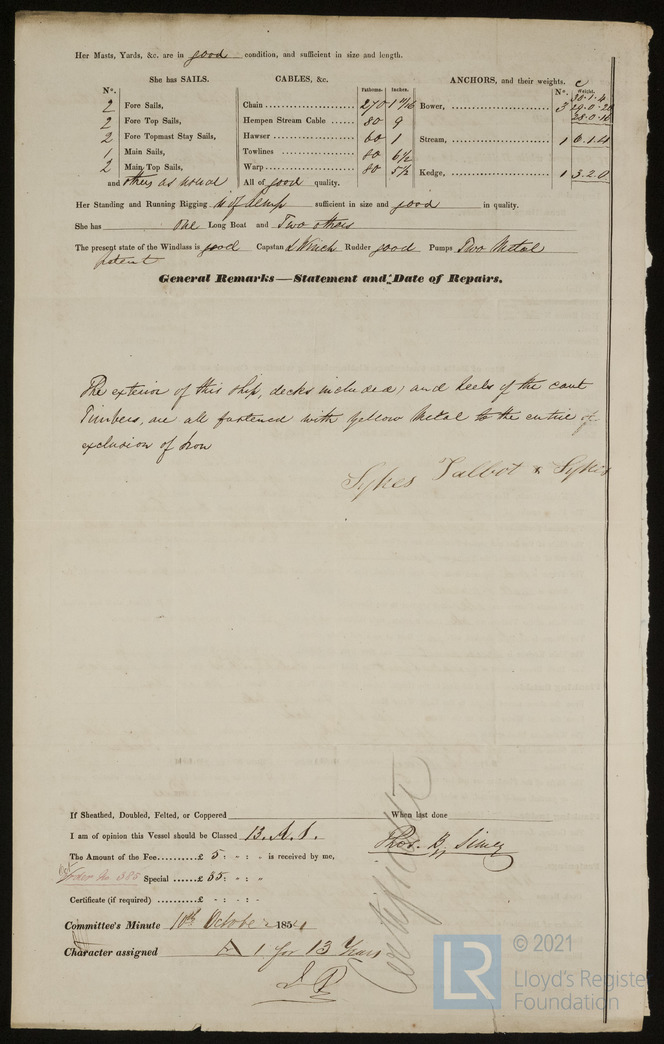 Her Masts, Yards, &c. are in good condition, and sufficient in size and length.
She has SAILS. CABLES, &c. ANCHORS, and their weights.
No. Fathoms. Inches. No. Weight.
2 Fore Sails, Chain 270 1 11/16 Bower, 3 30.1.4
29.0.20
28.0.16
2 Fore Top Sails, Hempen Stream Cable 80 9
2 Fore Topmast Stay Sails, Hawser 60 1 Stream, 1 6.1.4
1 Main Sails, Towlines 80 6 1/2
2 Main Top Sails, Warp 80 5 1/2 Kedge, 1 3.2.0
and others as usual All of good quality.
Her Standing and Running Rigging is of Hemp sufficient in size and good in quality.
She has one Long Boat and Two others
The present state of the Windlass is good Capstan & Winch Rudder good Pumps Two Metal
patent
General Remarks—Statement and Date of Repairs.
The exterior of this ship, decks included, and heels of the cant
Timbers, are all fastened with yellow Metal to the entire
exclusion of Iron
Sykes Talbot & Sykes
If Sheathed, Doubled, Felted, or Coppered When last done
I am of opinion this Vessel should be Classed 13. A. 1.
The Amount of the Fee £ 5 : " : " is received by me,
Thos. B. Simey
Special £ 35 : " : "
Certificate (if required) £ - : - : -
Committee's Minute 10th October 1854
Character assigned A 1 for 13 Years
Certificate
© 2021
LR Lloyd's Register
Foundation